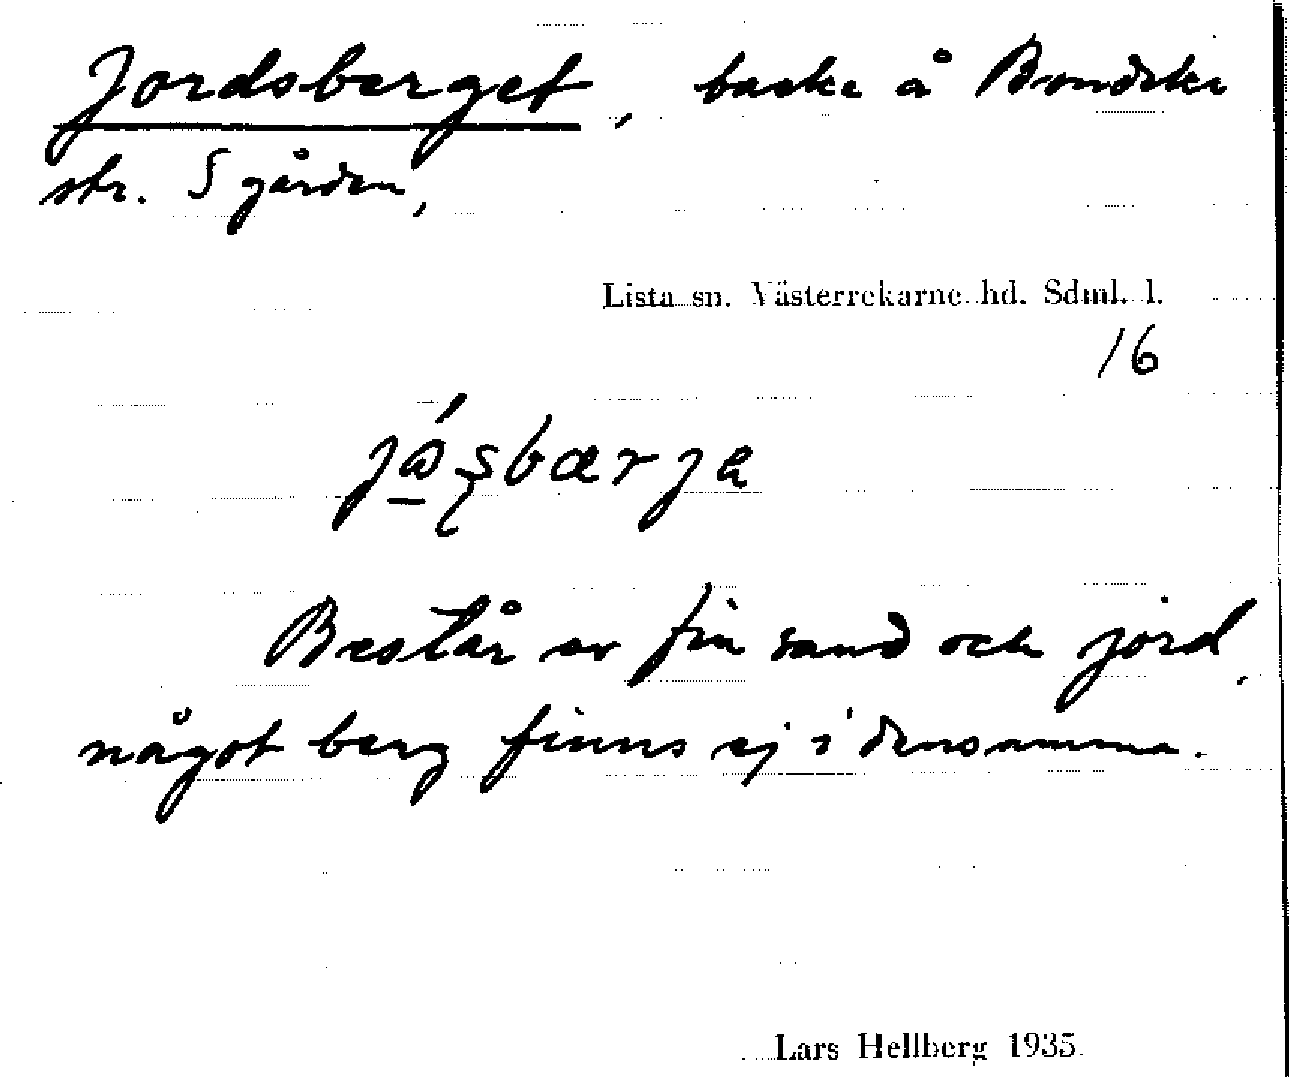 Jordsberget, backe å Bondeke
str. S gården,
Lista sn. Västerrekarne hd. Sdml. l.
16
Består av fin sand och jord,
något berg finns ej i densamma.
Lars Hellberg 1935